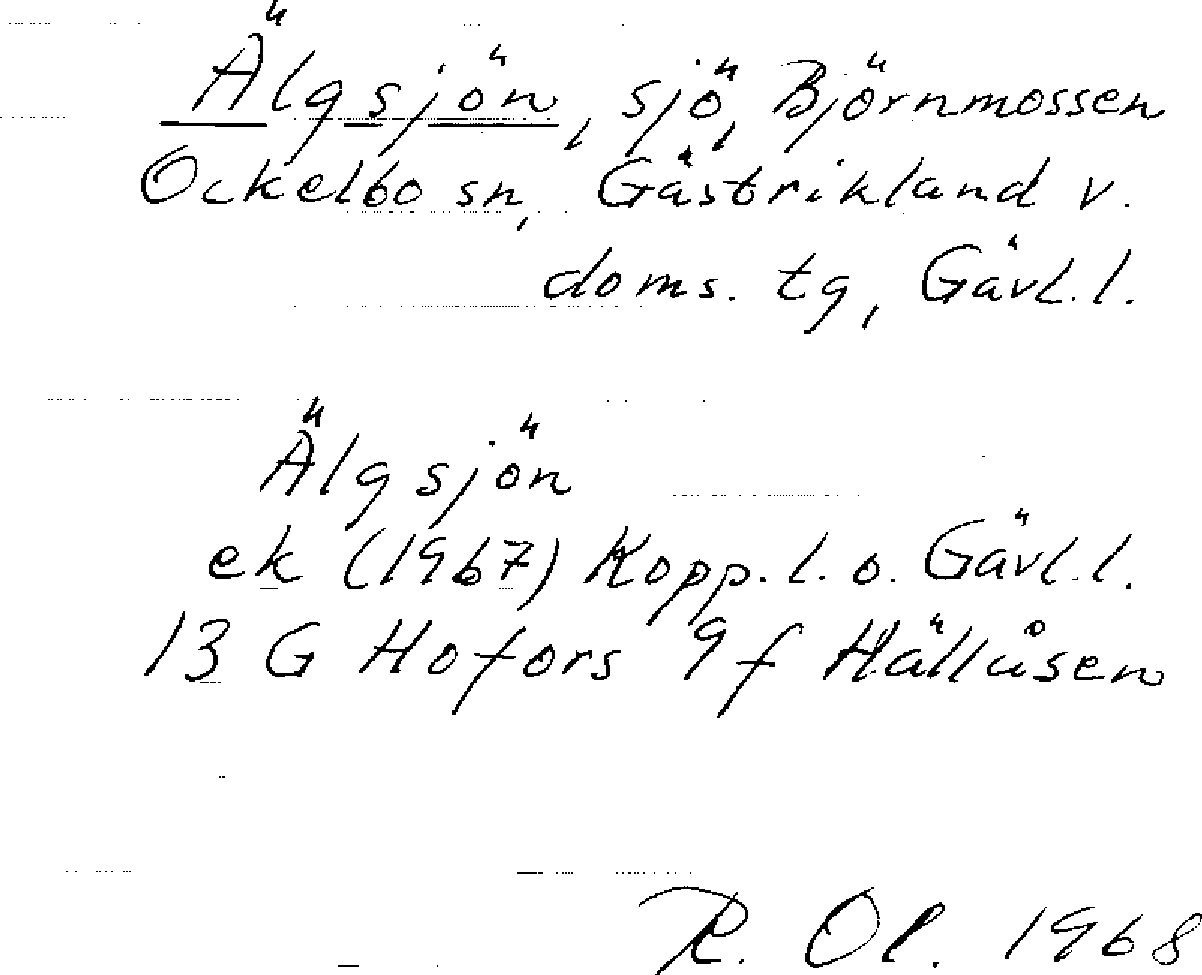 Älgsjön, sjö, Björnmossen
Ockelbo sn, Gästrikland v.
doms. tg, Gävl.l.
Älgsjön
ek (1967) Kopp.l. o. Gävl.l.
13 G Hofors 9f Hällåsen
R. Ol. 1968